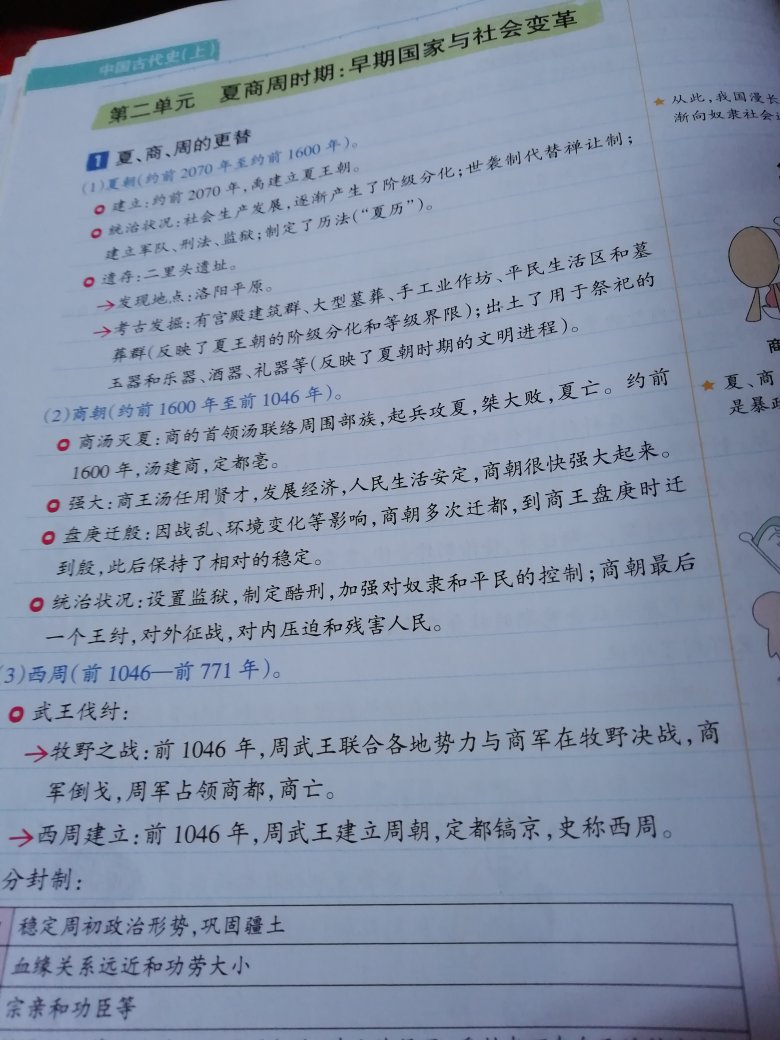 中国古代史(上)
第二单元 夏商周时期:早期国家与社会变革
1 夏、商、周的更替
(1)夏朝(约前 2070 年至约前 1600 年)。
建立:约前 2070 年,禹建立夏王朝。
统治状况:社会生产发展,逐渐产生了阶级分化;世袭制代替禅让制;
建立军队、刑法、监狱;制定了历法(“夏历”)。
遗存:二里头遗址。
→发现地点:洛阳平原。
→考古发掘:有宫殿建筑群、大型墓葬、手工业作坊、平民生活区和墓
葬群(反映了夏王朝的阶级分化和等级界限);出土了用于祭祀的
玉器和乐器、酒器、礼器等(反映了夏朝时期的文明进程)。
(2)商朝(约前 1600 年至前 1046 年)。
商汤灭夏:商的首领汤联络周围部族,起兵攻夏,桀大败,夏亡。约前
1600 年,汤建商,定都亳。
强大:商王汤任用贤才,发展经济,人民生活安定,商朝很快强大起来。
盘庚迁殷:因战乱、环境变化等影响,商朝多次迁都,到商王盘庚时迁
到殷,此后保持了相对的稳定。
统治状况:设置监狱,制定酷刑,加强对奴隶和平民的控制;商朝最后
一个王纣,对外征战,对内压迫和残害人民。
3)西周(前 1046—前 771 年)。
武王伐纣:
→牧野之战:前 1046 年,周武王联合各地势力与商军在牧野决战,商
军倒戈,周军占领商都,商亡。
→西周建立:前 1046 年,周武王建立周朝,定都镐京,史称西周。
分封制:
稳定周初政治形势,巩固疆土
血缘关系远近和功劳大小
宗亲和功臣等
★ 从此,我国漫长
渐向奴隶社会
商
★ 夏、商
是暴政